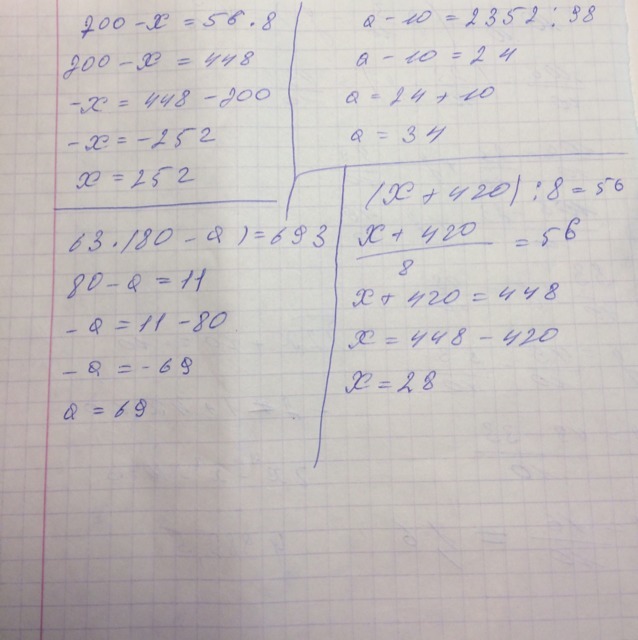 700 - x = 56 . 8
700 - x = 448
-x = 448 - 700
-x = -252
x = 252
a - 10 = 2352 : 98
a - 10 = 24
a = 24 + 10
a = 34
63 . (80 - a) = 693
80 - a = 11
-a = 11 - 80
-a = -69
a = 69
(x + 420) : 8 = 56
x + 420
8
= 56
x + 420 = 448
x = 448 - 420
x = 28